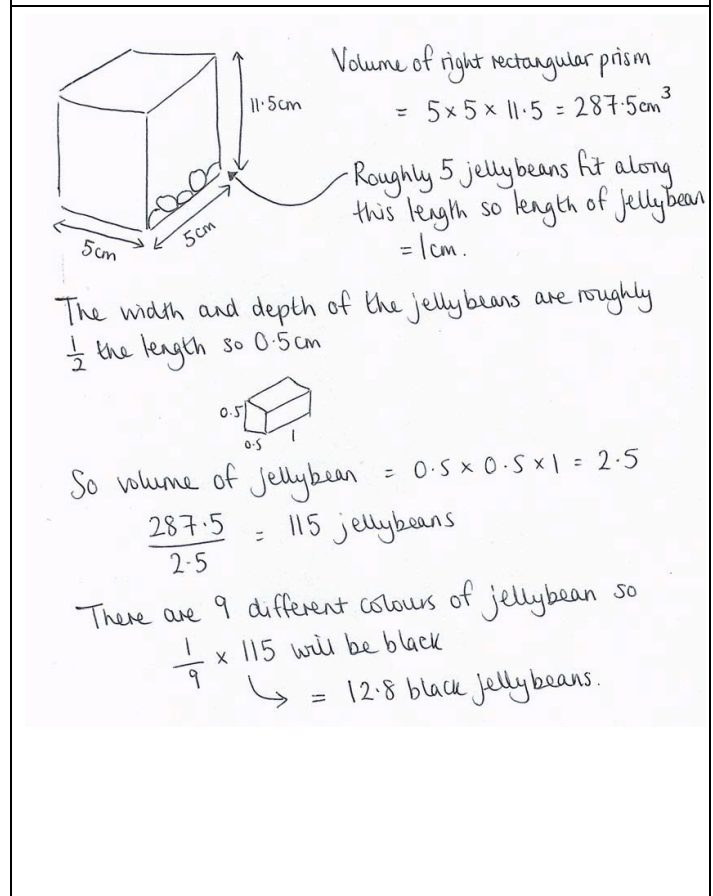 Volume of right rectangular prism
= 5 x 5 x 11.5 = 287.5cm³
11.5cm
Roughly 5 jellybeans fit along
this length so length of jellybean
= 1cm.
5cm
5cm
The width and depth of the jellybeans are roughly
1/2 the length so 0.5cm
0.5
0.5
1
So volume of jellybean = 0.5 x 0.5 x 1 = 2.5
287.5
2.5
= 115 jellybeans
There are 9 different colours of jellybean so
1/9 x 115 will be black
↳ = 12.8 black jellybeans.